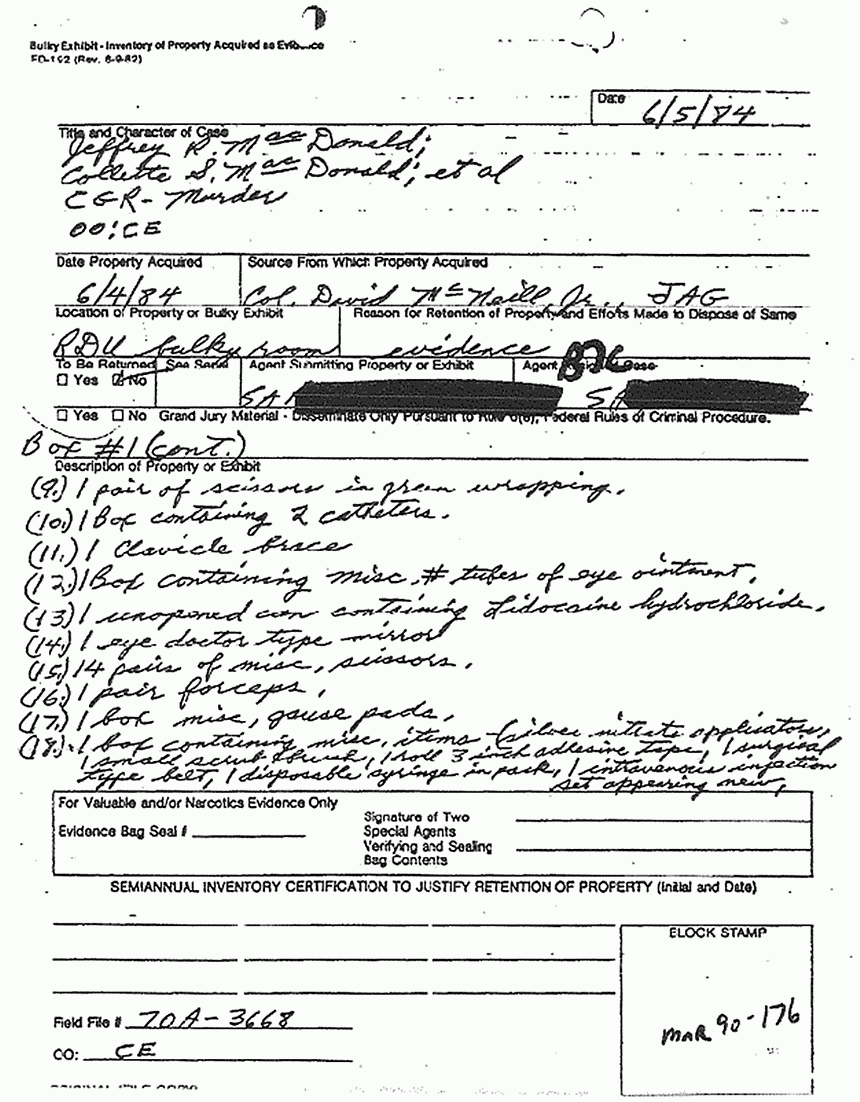 Bulky Exhibit - Inventory of Property Acquired as Evidence
FD-192 (Rev. 6-9-82)
Date
6/5/84
Title and Character of Case
Jeffrey R. MacDonald;
Collette S. MacDonald; et al
CGR - Murder
OO: CE
Date Property Acquired
Source From Which Property Acquired
6/4/84
Col. David McNeill, Jr., JAG
Location of Property or Bulky Exhibit
Reason for Retention of Property and Efforts Made to Dispose of Same
RDU bulky room
evidence
To Be Returned
See Serial
Agent Submitting Property or Exhibit
Agent
Case
☐ Yes ☒ No
SA
SA
☐ Yes ☐ No Grand Jury Material - Disseminate Only Pursuant to Rule 6(e), Federal Rules of Criminal Procedure.
Box #1 (cont.)
Description of Property or Exhibit
(9.) 1 pair of scissors in green wrapping.
(10.) 1 Box containing 2 catheters.
(11.) 1 Clavicle brace
(12.) 1 Box containing misc. # tubes of eye ointment.
(13) 1 unopened can containing Lidocaine hydrochloride.
(14.) 1 eye doctor type mirror
(15.) 14 pairs of misc, scissors.
(16.) 1 pair forceps,
(17.) 1 box misc, gause pads,
(18.) 1 box containing misc, items - (silver nitrate applicators,
1 small scrub brush, 1 roll 3 inch adhesive tape, 1 surgical
type belt, 1 disposable syringe in pack, 1 intravenous injection
set appearing new,
For Valuable and/or Narcotics Evidence Only
Evidence Bag Seal #
Signature of Two
Special Agents
Verifying and Sealing
Bag Contents
SEMIANNUAL INVENTORY CERTIFICATION TO JUSTIFY RETENTION OF PROPERTY (Initial and Date)
BLOCK STAMP
Field File # 70A-3668
OO: CE
MAR 90-176